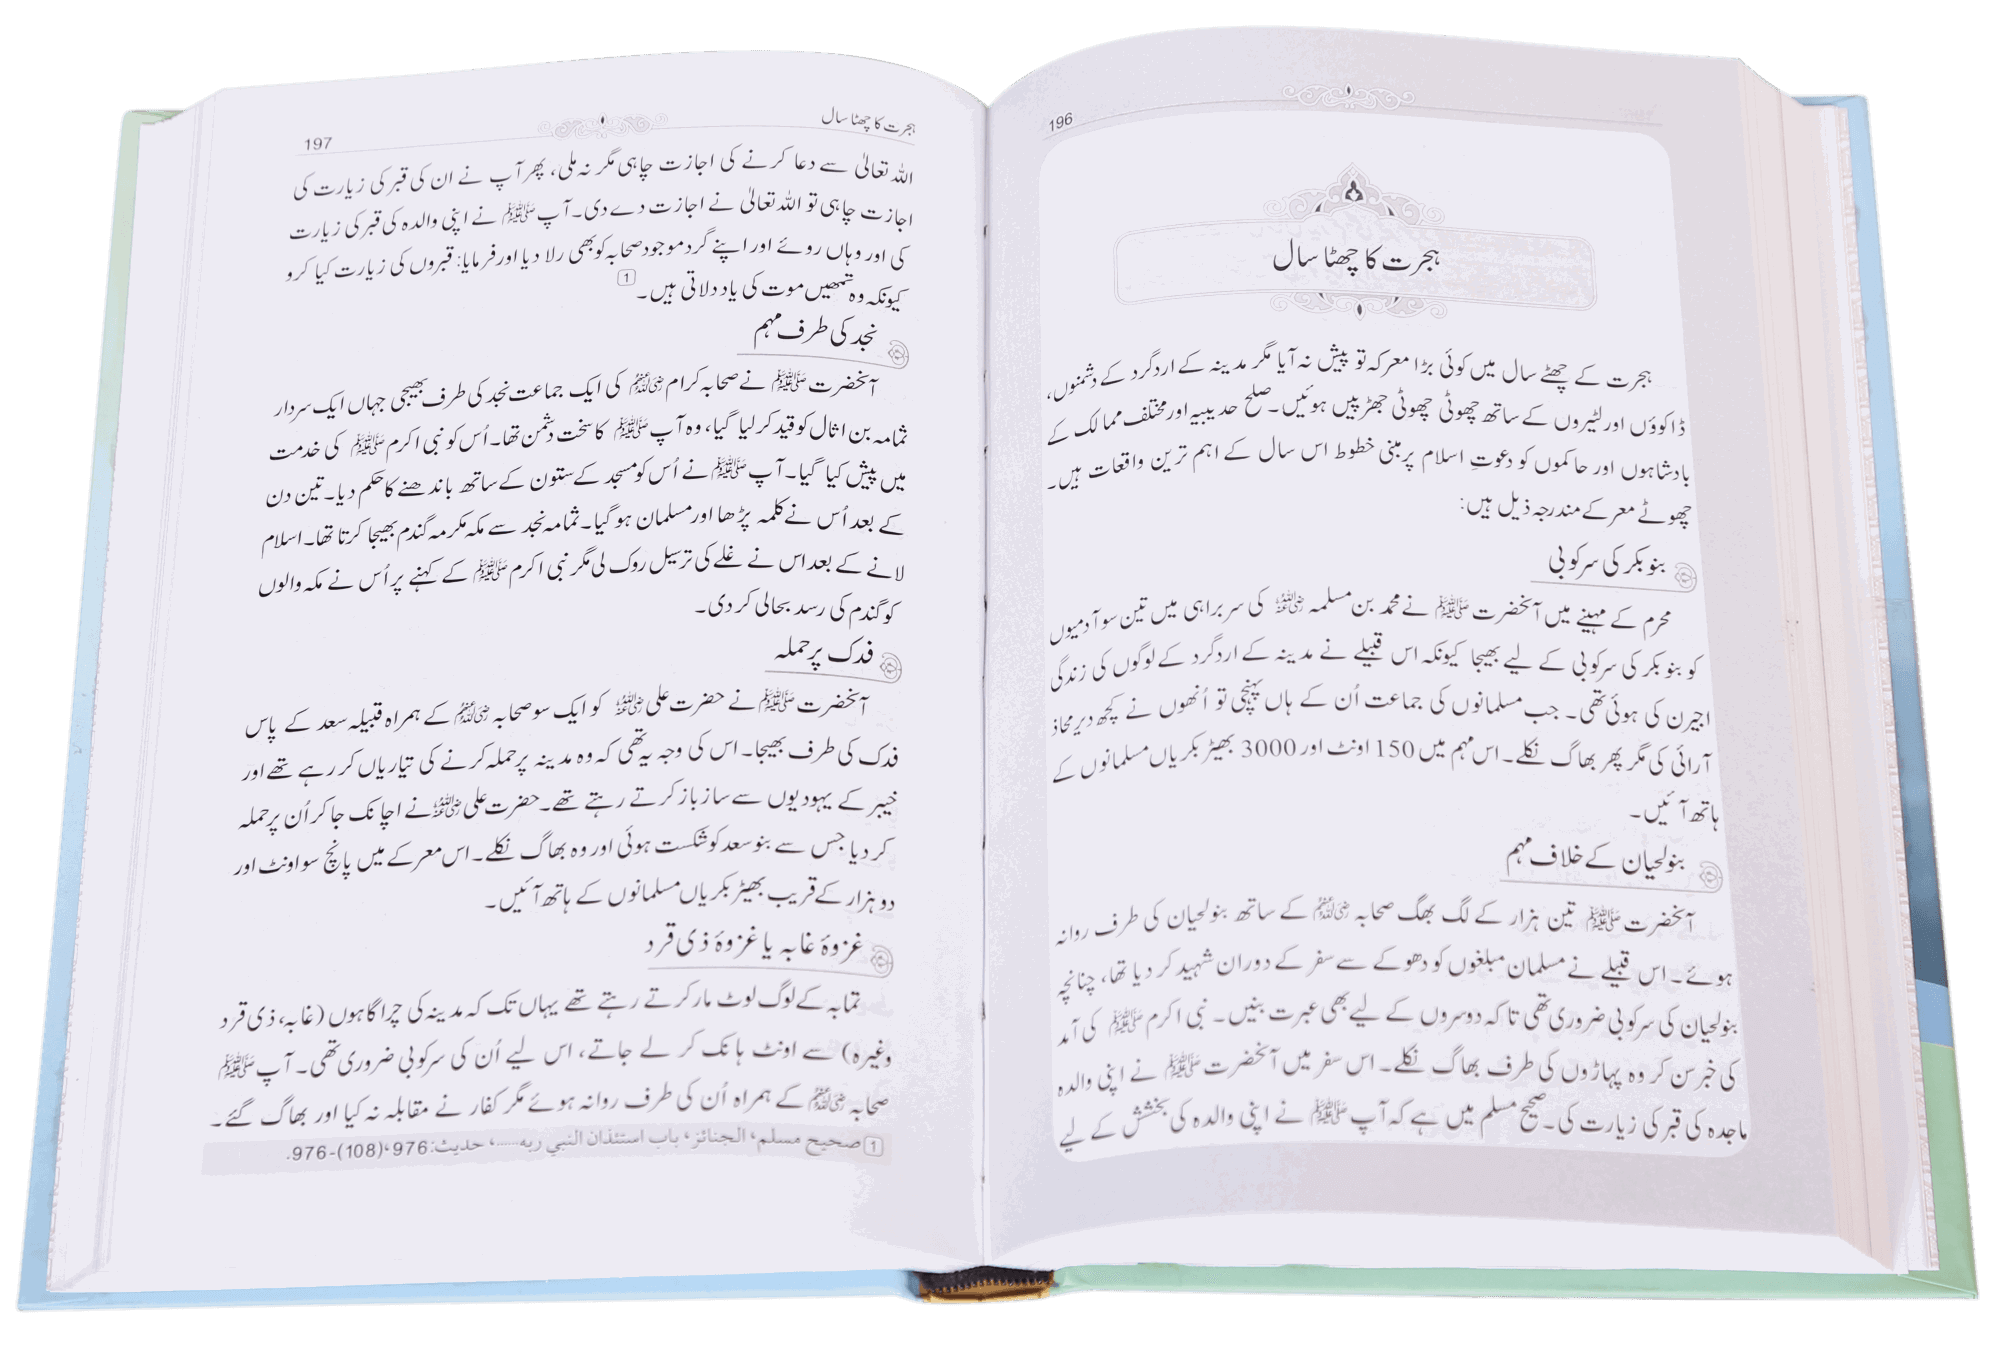 196
ہجرت کا چھٹا سال
ہجرت کے چھٹے سال میں کوئی بڑا معرکہ تو پیش نہ آیا مگر مدینہ کے اردگرد کے دشمنوں،
ڈاکوؤں اور لٹیروں کے ساتھ چھوٹی چھوٹی جھڑپیں ہوئیں۔ صلح حدیبیہ اور مختلف ممالک کے
بادشاہوں اور حاکموں کو دعوتِ اسلام پر مبنی خطوط اس سال کے اہم ترین واقعات ہیں۔
چھوٹے معرکے مندرجہ ذیل ہیں:
بنو بکر کی سرکوبی
محرم کے مہینے میں آنحضرت ﷺ نے محمد بن مسلمہ رضی اللہ عنہ کی سربراہی میں تین سو آدمیوں
کو بنو بکر کی سرکوبی کے لیے بھیجا کیونکہ اس قبیلے نے مدینہ کے اردگرد کے لوگوں کی زندگی
اجیرن کی ہوئی تھی۔ جب مسلمانوں کی جماعت اُن کے ہاں پہنچی تو اُنھوں نے کچھ دیر محاذ
آرائی کی مگر پھر بھاگ نکلے۔ اس مہم میں 150 اونٹ اور 3000 بھیڑ بکریاں مسلمانوں کے
ہاتھ آئیں۔
بنولحیان کے خلاف مہم
آنحضرت ﷺ تین ہزار کے لگ بھگ صحابہ رضی اللہ عنہم کے ساتھ بنولحیان کی طرف روانہ
ہوئے۔ اس قبیلے نے مسلمان مبلغوں کو دھوکے سے سفر کے دوران شہید کر دیا تھا، چنانچہ
بنولحیان کی سرکوبی ضروری تھی تاکہ دوسروں کے لیے بھی عبرت بنیں۔ نبی اکرم ﷺ کی آمد
کی خبر سن کر وہ پہاڑوں کی طرف بھاگ نکلے۔ اس سفر میں آنحضرت ﷺ نے اپنی والدہ
ماجدہ کی قبر کی زیارت کی۔ صحیح مسلم میں ہے کہ آپ ﷺ نے اپنی والدہ کی بخشش کے لیے
ہجرت کا چھٹا سال 197
اللہ تعالیٰ سے دعا کرنے کی اجازت چاہی مگر نہ ملی، پھر آپ نے ان کی قبر کی زیارت کی
اجازت چاہی تو اللہ تعالیٰ نے اجازت دے دی۔ آپ ﷺ نے اپنی والدہ کی قبر کی زیارت
کی اور وہاں روئے اور اپنے گرد موجود صحابہ کو بھی رلا دیا اور فرمایا: قبروں کی زیارت کیا کرو
کیونکہ وہ تمھیں موت کی یاد دلاتی ہیں۔ 1
نجد کی طرف مہم
آنحضرت ﷺ نے صحابہ کرام رضی اللہ عنہم کی ایک جماعت نجد کی طرف بھیجی جہاں ایک سردار
ثمامہ بن اثال کو قید کر لیا گیا، وہ آپ ﷺ کا سخت دشمن تھا۔ اُس کو نبی اکرم ﷺ کی خدمت
میں پیش کیا گیا۔ آپ ﷺ نے اُس کو مسجد کے ستون کے ساتھ باندھنے کا حکم دیا۔ تین دن
کے بعد اُس نے کلمہ پڑھا اور مسلمان ہو گیا۔ ثمامہ نجد سے مکہ مکرمہ گندم بھیجا کرتا تھا۔ اسلام
لانے کے بعد اس نے غلے کی ترسیل روک لی مگر نبی اکرم ﷺ کے کہنے پر اُس نے مکہ والوں
کو گندم کی رسد بحالی کر دی۔
فدک پر حملہ
آنحضرت ﷺ نے حضرت علی رضی اللہ عنہ کو ایک سو صحابہ رضی اللہ عنہم کے ہمراہ قبیلہ سعد کے پاس
فدک کی طرف بھیجا۔ اس کی وجہ یہ تھی کہ وہ مدینہ پر حملہ کرنے کی تیاریاں کر رہے تھے اور
خیبر کے یہودیوں سے ساز باز کرتے رہتے تھے۔ حضرت علی رضی اللہ عنہ نے اچانک جا کر اُن پر حملہ
کر دیا جس سے بنو سعد کو شکست ہوئی اور وہ بھاگ نکلے۔ اس معرکے میں پانچ سو اونٹ اور
دو ہزار کے قریب بھیڑ بکریاں مسلمانوں کے ہاتھ آئیں۔
غزوۂ غابہ یا غزوۂ ذی قرد
تمابہ کے لوگ لوٹ مار کرتے رہتے تھے یہاں تک کہ مدینہ کی چراگاہوں (غابہ، ذی قرد
وغیرہ) سے اونٹ ہانک کر لے جاتے، اس لیے اُن کی سرکوبی ضروری تھی۔ آپ ﷺ
صحابہ رضی اللہ عنہم کے ہمراہ اُن کی طرف روانہ ہوئے مگر کفار نے مقابلہ نہ کیا اور بھاگ گئے۔
1 صحیح مسلم، الجنائز، باب استئذان النبي ربه......، حدیث: 976،(108)-976.